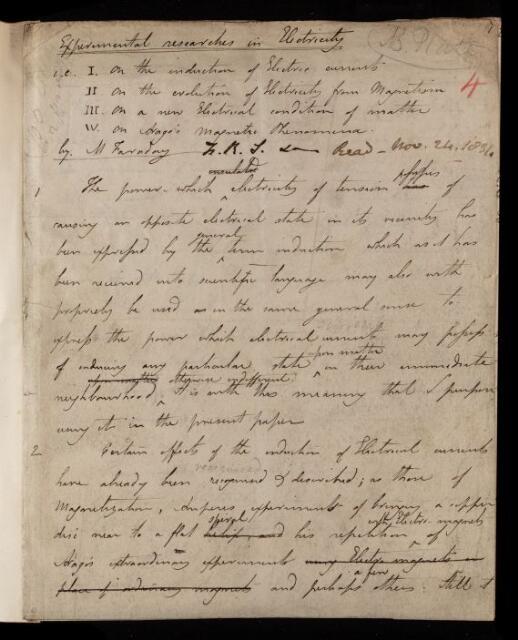 Experimental researches in Electricity
i.e. I. On the induction of Electric currents
II On the evolution of Electricity from Magnetism
III. On a new Electrical condition of matter
IV. On Arago's Magnetic Phenomena.
4
by. M Faraday F.R.S. &c Read - Nov. 24. 1831
insulated
1 The power which electricity of tension possesses of
causing an opposite electrical state in its vicinity has
general
been expressed by the term induction which as it has
been received into scientific language may also with
propriety be used in the same general sense to
express the power which electrical currents may possess
upon matter
of inducing any particular state in their immediate
upon matter otherwise indifferent
neighbourhood It is with this meaning that I purpose
using it in the present paper
2 Certain effects of the induction of Electrical currents
have already been recognised & described; as those of
Magnetization, Amperes experiments of bringing a copper
spiral with Electro magnets
disc near to a flat helix, and his repetition of
Arago's extraordinary experiments using Electro magnets in
a few
place of ordinary magnets and perhaps others. Still it